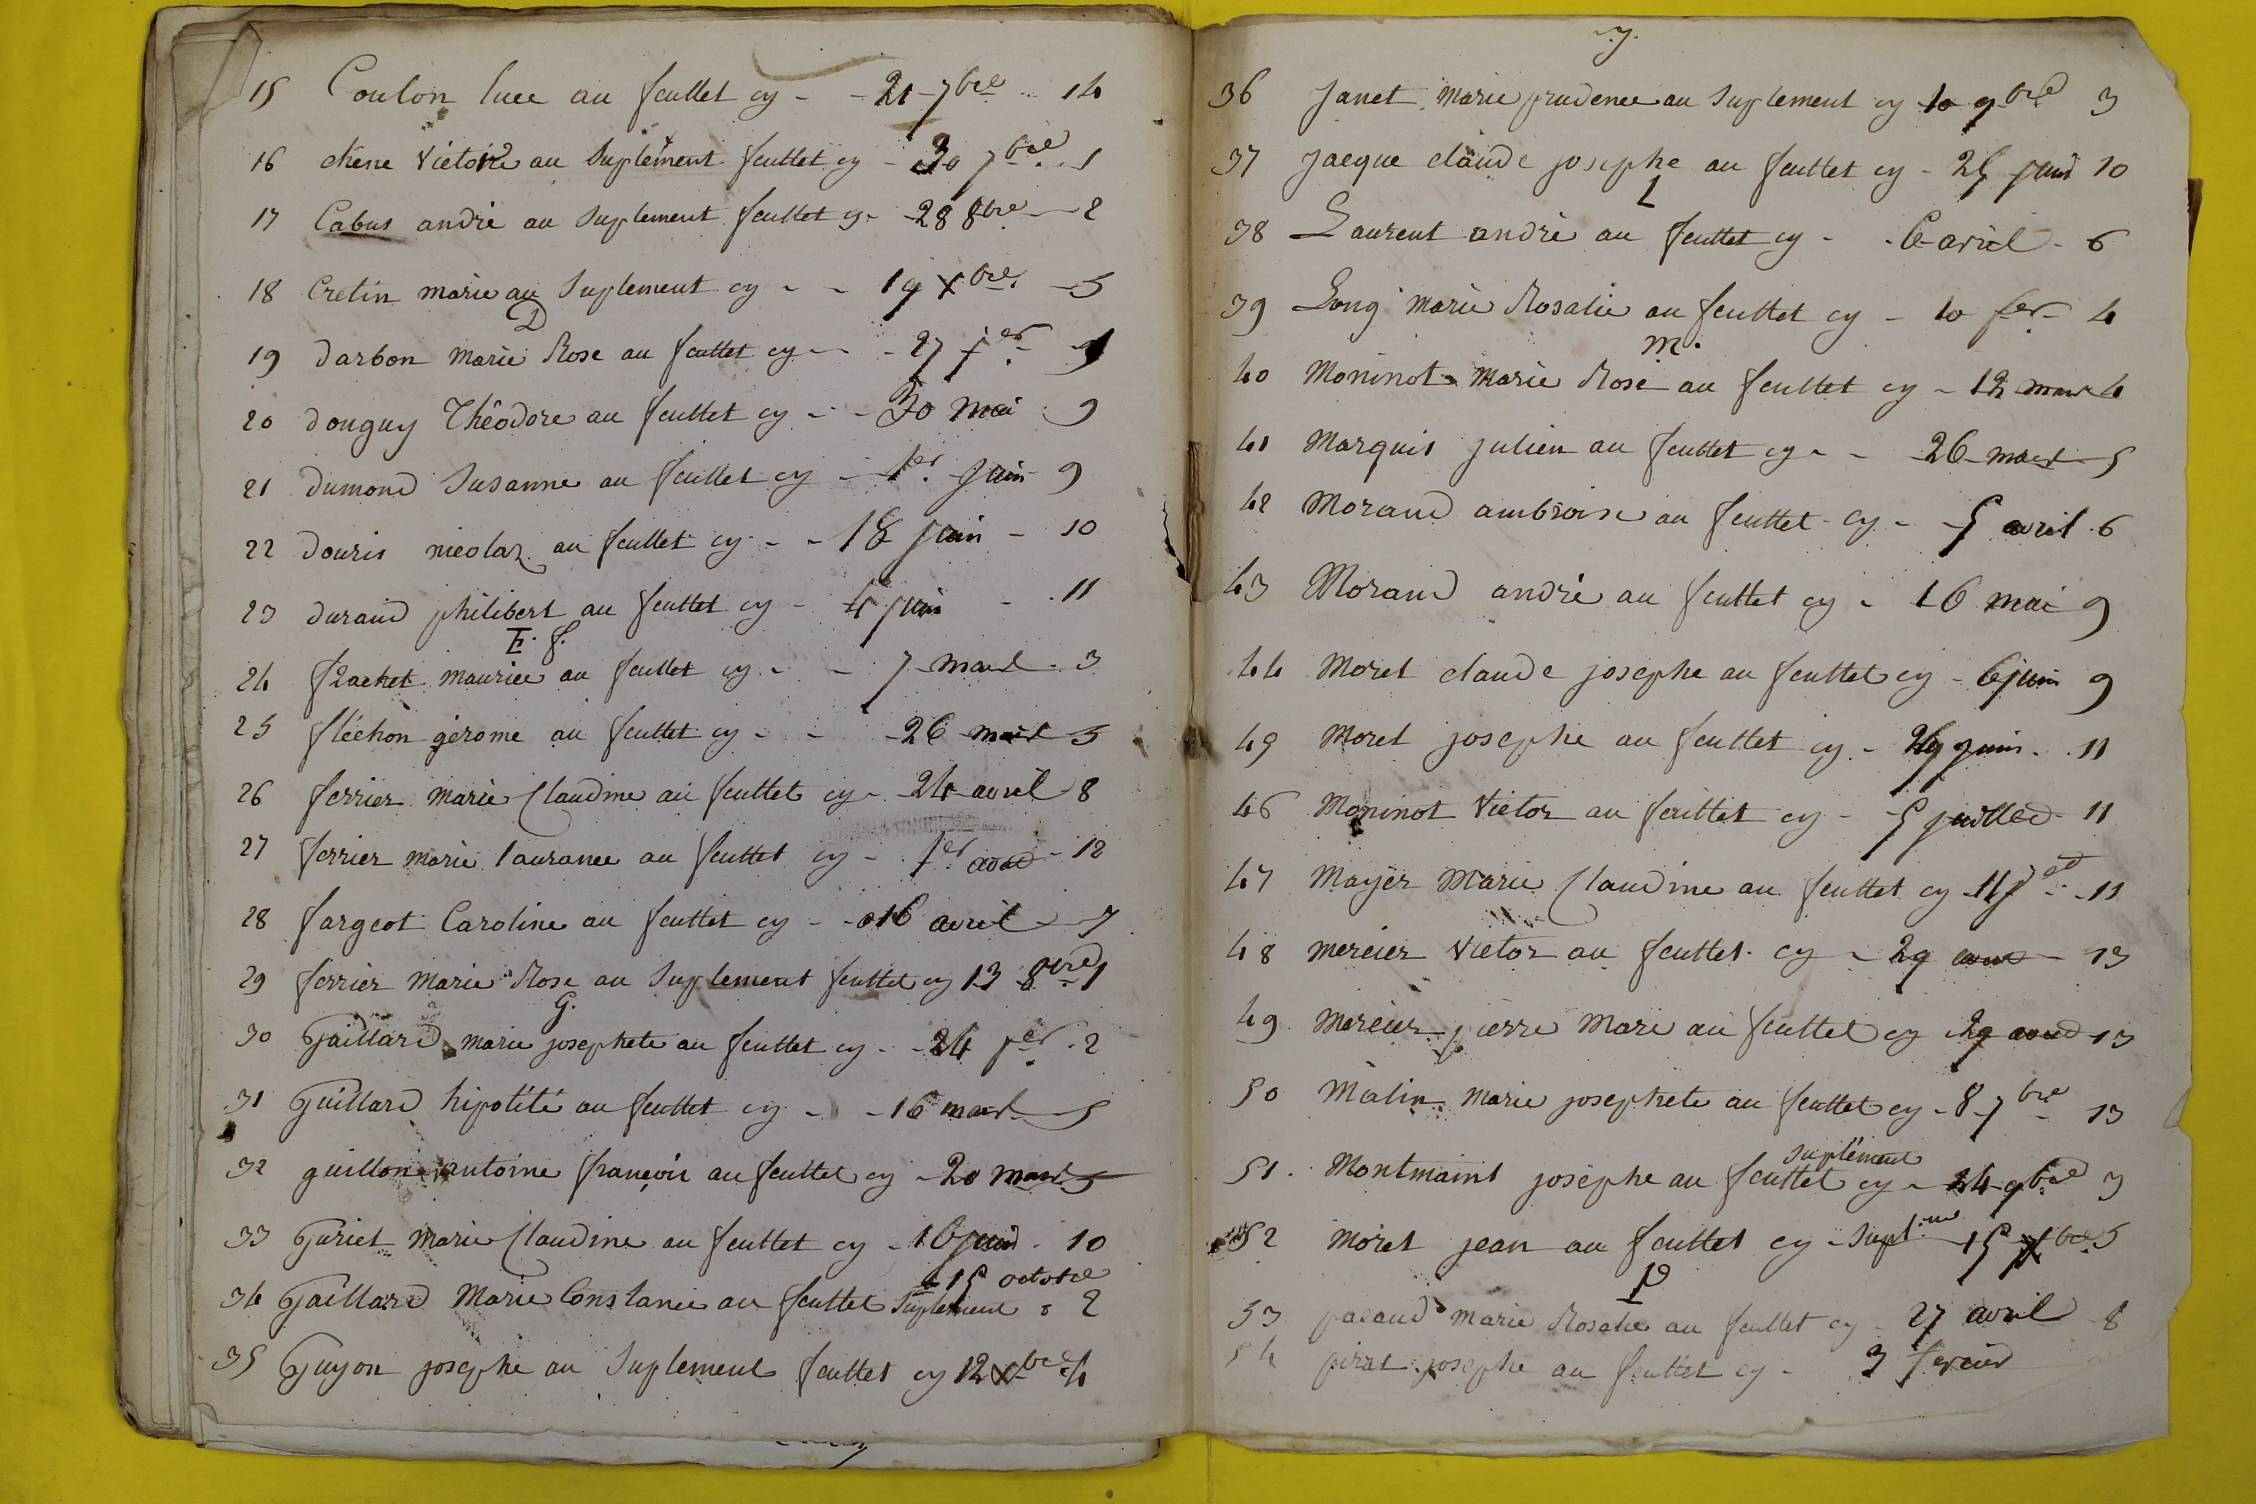 15 Coulon luce au feullet cy - - 21 7bre - 14
16 chêne Victoire au Suplément feullet cy - 30 7bre - 1
17 Cabus andré au Suplement feullet cy - 28 8bre - 2
18 Cretin marie au Suplement cy - - 19 Xbre - 5
D
19 darbon Marie Rose au feullet cy - - 27 fer
20 douguy Théodore au feullet cy - - 30 Mai 9
21 dumond Susanne au feullet cy - 1er Juin 9
22 douris nicolas au feullet cy - - 18 juin - 10
23 duraud philibert au feullet cy - 4 juin - 11
E. f.
24 frachet maurice au feullet cy - - 7 mars 3
25 fléchon gérome au feullet cy - - 26 mars 5
26 ferrier Marie Claudine au feullet cy - 24 avril 8
27 ferrier marie laurance au feullet cy - 1er aout - 12
28 fargeot Caroline au feullet cy - - 16 avril - 7
29 ferrier Marie Rose au Suplement feullet cy 13 8bre 1
G.
30 Gaillard marie josephete au feullet cy - - 24 fer - 2
31 Guillard hipolité au feullet cy - - 16 mars 5
32 guillon antoine françois au feullet cy - 20 mars 5
33 Guriet Marie Claudine au feullet cy - 16 juin - 10
15 octobre
34 Gaillard Marie Constance au feullet Suplement 2
35 Guyon josephe au Suplement feullet cy 12 Xbre 4
J.
36 Janet Marie prudence au Suplement cy 10 9bre 3
37 Jacque claude josephe au feullet cy - 25 juin 10
L
38 Laurent andré au feullet cy - - 6 avril - 6
39 Long Marie Rosalie au feullet cy - 10 fer - 4
M.
40 Moninot Marie Rose au feullet cy - 12 mars 4
41 Marquis julien au feullet cy - - 26 mars 5
42 Moraud ambroise au feullet cy - - 5 avril 6
43 Moraud andré au feullet cy - 16 mai 9
44 Moret claude josephe au feullet cy - 6 juin 9
49 Moret josephe au feullet cy - 29 juin - 11
46 Moninot Victor au feullet cy - 5 juilled - 11
47 Mayer Marie Claudine au feullet cy - 11 - 11
48 mercier Victor au feullet cy - 29 aout - 13
49 mercier pierre Marc au feullet cy 29 aoud 13
50 Mâlin Marie josephete au feullet cy - 8 7bre 13
suplément
51. Montmaint josephe au feullet cy - 24 9bre 3
52 Moret jean au feullet cy - Suplme 15 Xbre 5
P
53 pacaud Marie Rosalie au feullet cy - 27 avril 8
54 pirat josephe au feullet cy - 3 fevrier